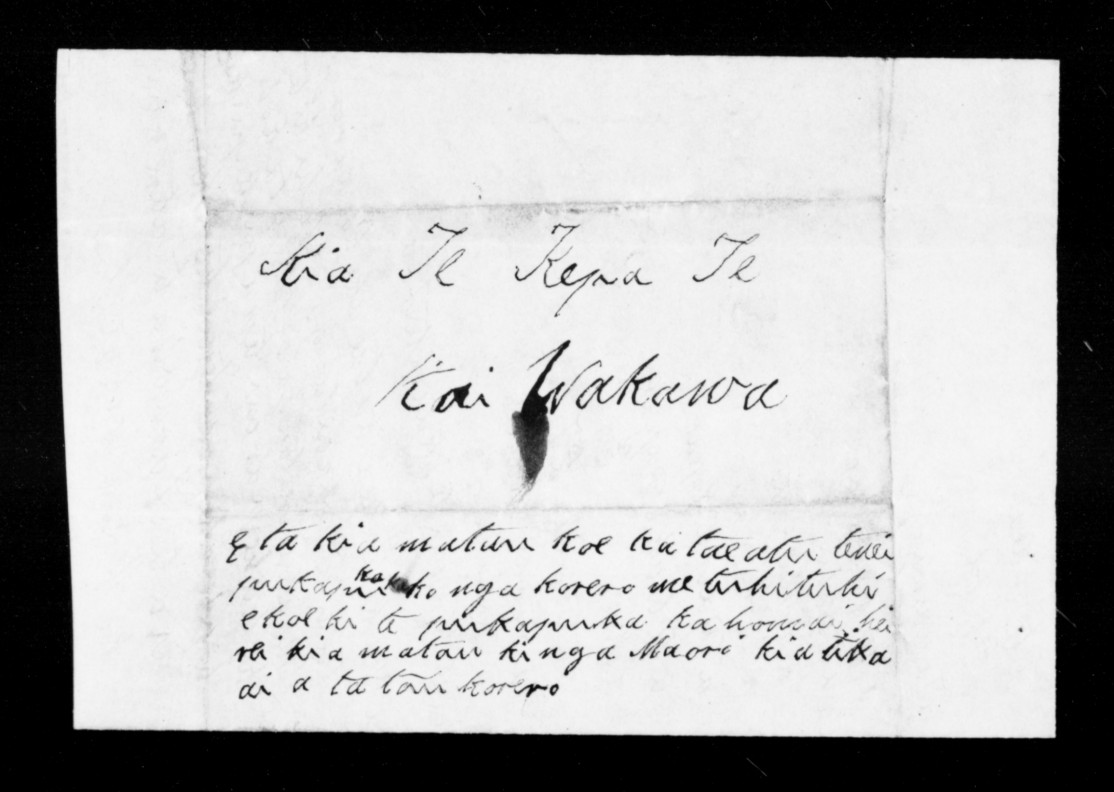 Kia Te Kepa Te
Kai Wakawa
E ta kia matau koe ka tae atu tenei
pukapuka ko nga korero me tuhituhi
e koe ki te pukapuka ka homai hei
rei kia matau ki nga Maori kia tika
ai a ta tou korero